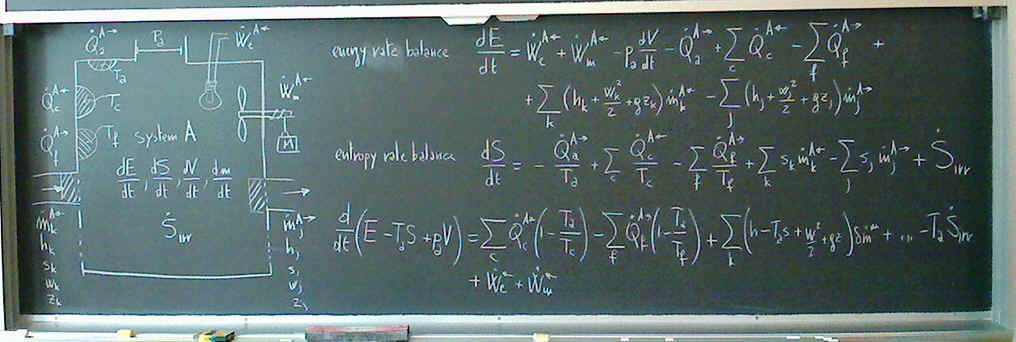 Q̇ₐ^A→
pₐ
Ẇₑ^A←
Tₐ
Q̇_c^A←
T_c
Ẇₘ^A←
Q̇_f^A→
T_f
M
system A
dE/dt, dS/dt, dV/dt, dm/dt
Ṡᵢᵣᵣ
ṁₖ^A←
hₖ
sₖ
wₖ
zₖ
ṁⱼ^A→
hⱼ
sⱼ
wⱼ
zⱼ
energy rate balance dE/dt = Ẇₑ^A← + Ẇₘ^A← − pₐ dV/dt − Q̇ₐ^A→ + ∑_c Q̇_c^A← − ∑_f Q̇_f^A→ +
+ ∑ₖ (hₖ + wₖ²/2 + gzₖ) ṁₖ^A← − ∑ⱼ (hⱼ + wⱼ²/2 + gzⱼ) ṁⱼ^A→
entropy rate balance dS/dt = − Q̇ₐ^A→/Tₐ + ∑_c Q̇_c^A←/T_c − ∑_f Q̇_f^A→/T_f + ∑ₖ sₖ ṁₖ^A← − ∑ⱼ sⱼ ṁⱼ^A→ + Ṡᵢᵣᵣ
d/dt (E − TₐS + pₐV) = ∑_c Q̇_c^A← (1 − Tₐ/T_c) − ∑_f Q̇_f^A→ (1 − Tₐ/T_f) + ∑ₖ (h − Tₐs + w²/2 + gz) δṁ^← + ... − TₐṠᵢᵣᵣ
+ Ẇₑ^← + Ẇₘ^←